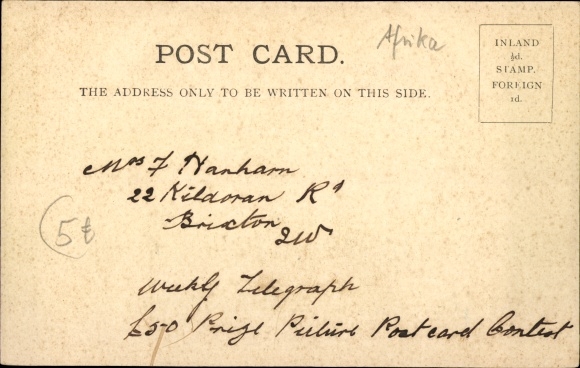 Afrika
POST CARD.
THE ADDRESS ONLY TO BE WRITTEN ON THIS SIDE.
INLAND
½d.
STAMP.
FOREIGN
1d.
Mrs F Hanham
22 Kildoran Rd
Brixton
SW
5€
Weekly Telegraph
£50 Prize Picture Postcard Contest